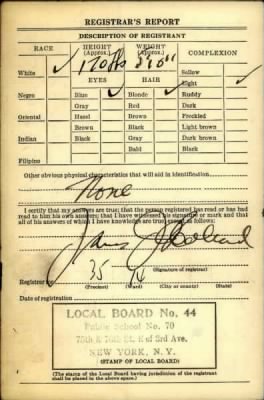 REGISTRAR'S REPORT
DESCRIPTION OF REGISTRANT
RACE HEIGHT (Approx.) WEIGHT (Approx.) COMPLEXION
White Sallow
EYES HAIR Light
Negro Blue Blonde Ruddy
Gray Red Dark
Oriental Hazel Brown Freckled
Brown Black Light brown
Indian Black Gray Dark brown
Bald Black
Filipino
Other obvious physical characteristics that will aid in identification
None
I certify that my answers are true; that the person registered has read or has had
read to him his own answers; that I have witnessed his signature or mark and that
all of his answers of which I have knowledge are true, except as follows:
Registrar for 35
(Precinct) (Ward) (Signature of registrar)
Date of registration
LOCAL BOARD No. 44
Public School No. 70
75th & 76th St. E of 3rd Ave.
NEW YORK, N. Y.
(STAMP OF LOCAL BOARD)
(The stamp of the Local Board having jurisdiction of the registrant
shall be placed in the above space.)